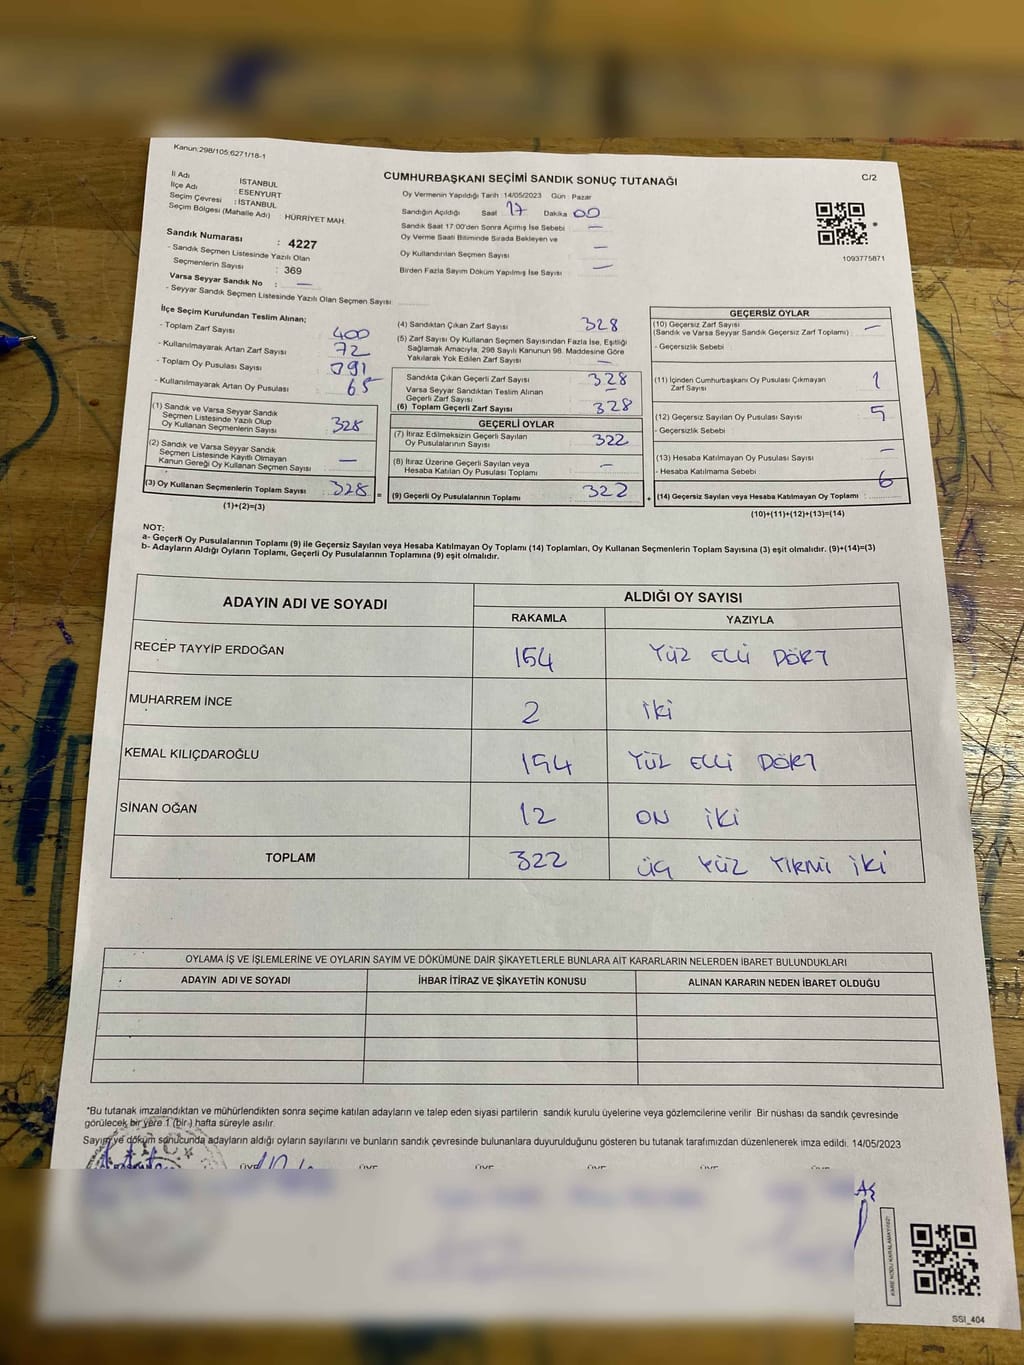 Kanun:298/105;6271/18-1
CUMHURBAŞKANI SEÇİMİ SANDIK SONUÇ TUTANAĞI
C/2
İl Adı : İSTANBUL
İlçe Adı : ESENYURT
Seçim Çevresi : İSTANBUL
Seçim Bölgesi (Mahalle Adı) : HÜRRİYET MAH.
Sandık Numarası : 4227
- Sandık Seçmen Listesinde Yazılı Olan
Seçmenlerin Sayısı : 369
Varsa Seyyar Sandık No : —
- Seyyar Sandık Seçmen Listesinde Yazılı Olan Seçmen Sayısı
Oy Vermenin Yapıldığı Tarih : 14/05/2023 Gün : Pazar
Sandığın Açıldığı Saat 17 Dakika 00
Sandık Saat 17:00'den Sonra Açımış İse Sebebi —
Oy Verme Saati Bitiminde Sırada Bekleyen ve
Oy Kullandırılan Seçmen Sayısı —
Birden Fazla Sayım Döküm Yapılmış İse Sayısı —
1093775871
İlçe Seçim Kurulundan Teslim Alınan;
- Toplam Zarf Sayısı 400
- Kullanılmayarak Artan Zarf Sayısı 72
- Toplam Oy Pusulası Sayısı 391
- Kullanılmayarak Artan Oy Pusulası 65
(1) Sandık ve Varsa Seyyar Sandık
Seçmen Listesinde Yazılı Olup
Oy Kullanan Seçmenlerin Sayısı 328
(2) Sandık ve Varsa Seyyar Sandık
Seçmen Listesinde Kayıtlı Olmayan
Kanun Gereği Oy Kullanan Seçmen Sayısı —
(3) Oy Kullanan Seçmenlerin Toplam Sayısı 328 =
(1)+(2)=(3)
(4) Sandıktan Çıkan Zarf Sayısı 328
(5) Zarf Sayısı Oy Kullanan Seçmen Sayısından Fazla İse, Eşitliği
Sağlamak Amacıyla, 298 Sayılı Kanunun 98. Maddesine Göre
Yakılarak Yok Edilen Zarf Sayısı —
Sandıkta Çıkan Geçerli Zarf Sayısı 328
Varsa Seyyar Sandıktan Teslim Alınan
Geçerli Zarf Sayısı
(6) Toplam Geçerli Zarf Sayısı 328
GEÇERLİ OYLAR
(7) İtiraz Edilmeksizin Geçerli Sayılan
Oy Pusulalarının Sayısı 322
(8) İtiraz Üzerine Geçerli Sayılan veya
Hesaba Katılan Oy Pusulası Toplamı —
(9) Geçerli Oy Pusulalarının Toplamı 322 +
GEÇERSİZ OYLAR
(10) Geçersiz Zarf Sayısı
(Sandık ve Varsa Seyyar Sandık Geçersiz Zarf Toplamı) —
- Geçersizlik Sebebi
(11) İçinden Cumhurbaşkanı Oy Pusulası Çıkmayan
Zarf Sayısı 1
(12) Geçersiz Sayılan Oy Pusulası Sayısı 5
- Geçersizlik Sebebi
(13) Hesaba Katılmayan Oy Pusulası Sayısı —
- Hesaba Katılmama Sebebi
(14) Geçersiz Sayılan veya Hesaba Katılmayan Oy Toplamı 6
(10)+(11)+(12)+(13)=(14)
NOT:
a- Geçerli Oy Pusulalarının Toplamı (9) ile Geçersiz Sayılan veya Hesaba Katılmayan Oy Toplamı (14) Toplamları, Oy Kullanan Seçmenlerin Toplam Sayısına (3) eşit olmalıdır. (9)+(14)=(3)
b- Adayların Aldığı Oyların Toplamı, Geçerli Oy Pusulalarının Toplamına (9) eşit olmalıdır.
ADAYIN ADI VE SOYADI ALDIĞI OY SAYISI
RAKAMLA YAZIYLA
RECEP TAYYİP ERDOĞAN 154 YÜZ ELLİ DÖRT
MUHARREM İNCE 2 İKİ
KEMAL KILIÇDAROĞLU 154 YÜZ ELLİ DÖRT
SİNAN OĞAN 12 ON İKİ
TOPLAM 322 ÜÇ YÜZ YİRMİ İKİ
OYLAMA İŞ VE İŞLEMLERİNE VE OYLARIN SAYIM VE DÖKÜMÜNE DAİR ŞİKAYETLERLE BUNLARA AİT KARARLARIN NELERDEN İBARET BULUNDUKLARI
ADAYIN ADI VE SOYADI İHBAR İTİRAZ VE ŞİKAYETİN KONUSU ALINAN KARARIN NEDEN İBARET OLDUĞU
*Bu tutanak imzalandıktan ve mühürlendikten sonra seçime katılan adayların ve talep eden siyasi partilerin sandık kurulu üyelerine veya gözlemcilerine verilir. Bir nüshası da sandık çevresinde
görülecek bir yere 1 (bir ) hafta süreyle asılır.
Sayım ve döküm sonucunda adayların aldığı oyların sayılarını ve bunların sandık çevresinde bulunanlara duyurulduğunu gösteren bu tutanak tarafımızdan düzenlenerek imza edildi. 14/05/2023
SSI_404